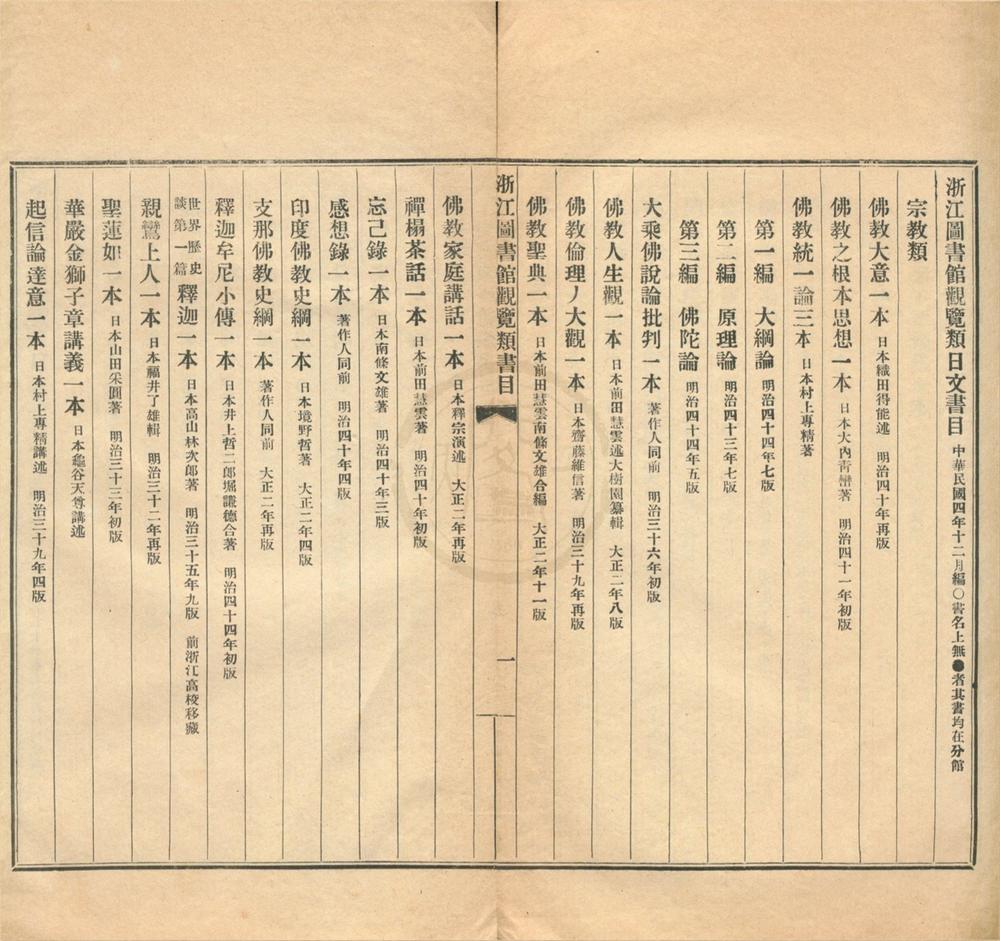 浙江圖書館觀覽類日文書目 中華民國四年十二月編○書名上無●者其書均在分館
宗教類
佛教大意一本 日本織田得能述 明治四十年再版
佛教之根本思想一本 日本大內青巒著 明治四十一年初版
佛教統一論三本 日本村上專精著
第一編 大綱論 明治四十四年七版
第二編 原理論 明治四十三年七版
第三編 佛陀論 明治四十四年五版
大乘佛說論批判一本 著作人同前 明治三十六年初版
佛教人生觀一本 日本前田慧雲述大樹園纂輯 大正二年八版
佛教倫理ノ大觀一本 日本齋藤維信著 明治三十九年再版
佛教聖典一本 日本前田慧雲南條文雄合編 大正二年十一版
浙江圖書館觀覽類書目 一
佛教家庭講話一本 日本釋宗演述 大正二年再版
禪榻茶話一本 日本前田慧雲著 明治四十年初版
忘己錄一本 日本南條文雄著 明治四十年三版
感想錄一本 著作人同前 明治四十年四版
印度佛教史綱一本 日本境野哲著 大正二年四版
支那佛教史綱一本 著作人同前 大正二年再版
釋迦牟尼小傳一本 日本井上哲二郎堀謙德合著 明治四十四年初版
世界歷史談第一篇 釋迦一本 日本高山林次郎著 明治三十五年九版 前浙江高校移藏
親鸞上人一本 日本福井了雄輯 明治三十二年再版
聖蓮如一本 日本山田釆圓著 明治三十三年初版
華嚴金獅子章講義一本 日本龜谷天尊講述
起信論達意一本 日本村上專精講述 明治三十九年四版